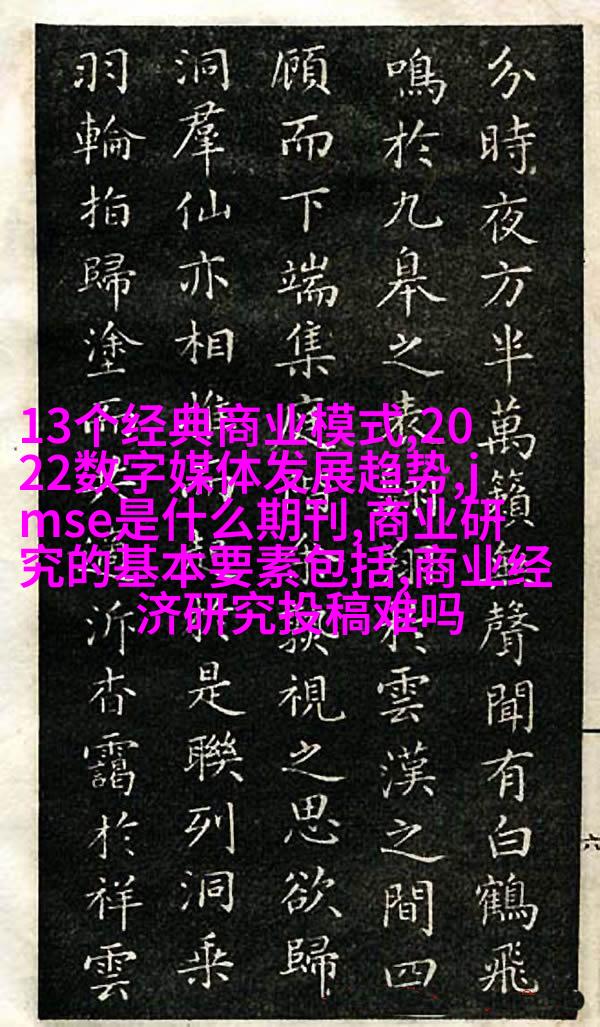 13个经典商业模式,20
22数字媒体发展趋势,j
mse是什么期刊,商业研
究的基本要素包括,商业经
济研究投稿难吗
分時夜方半萬籟無聲聞有白鶴飛
鳴於九皋之表翔於雲漢之間四
顧而下端集庭視之思欲歸
洞羣仙亦相惟於是聯列洞乘
羽輪拍歸塗而泝杳靄於祥雲
六